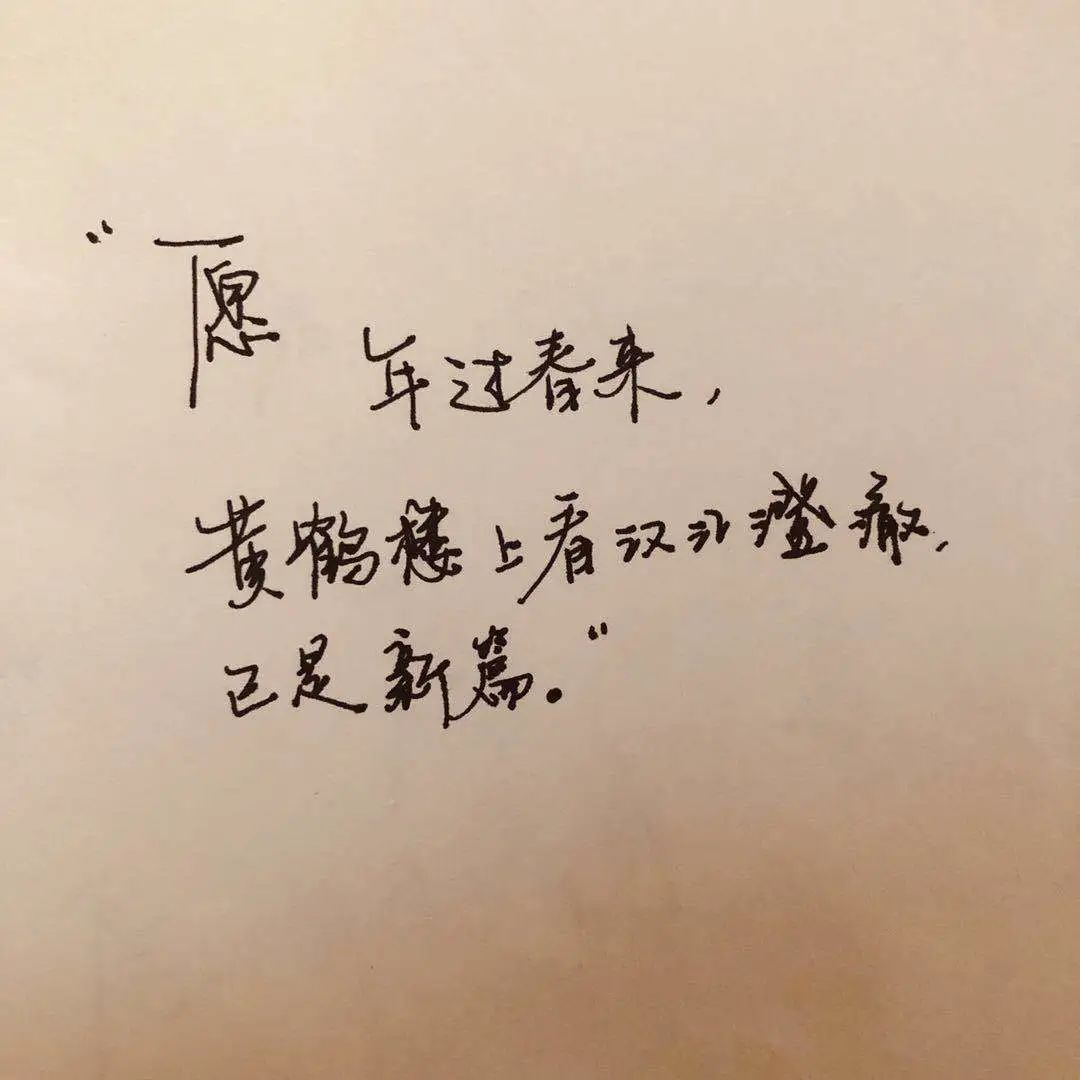 “愿
年过春来，
黄鹤楼上看汉水澄澈，
已是新篇。”